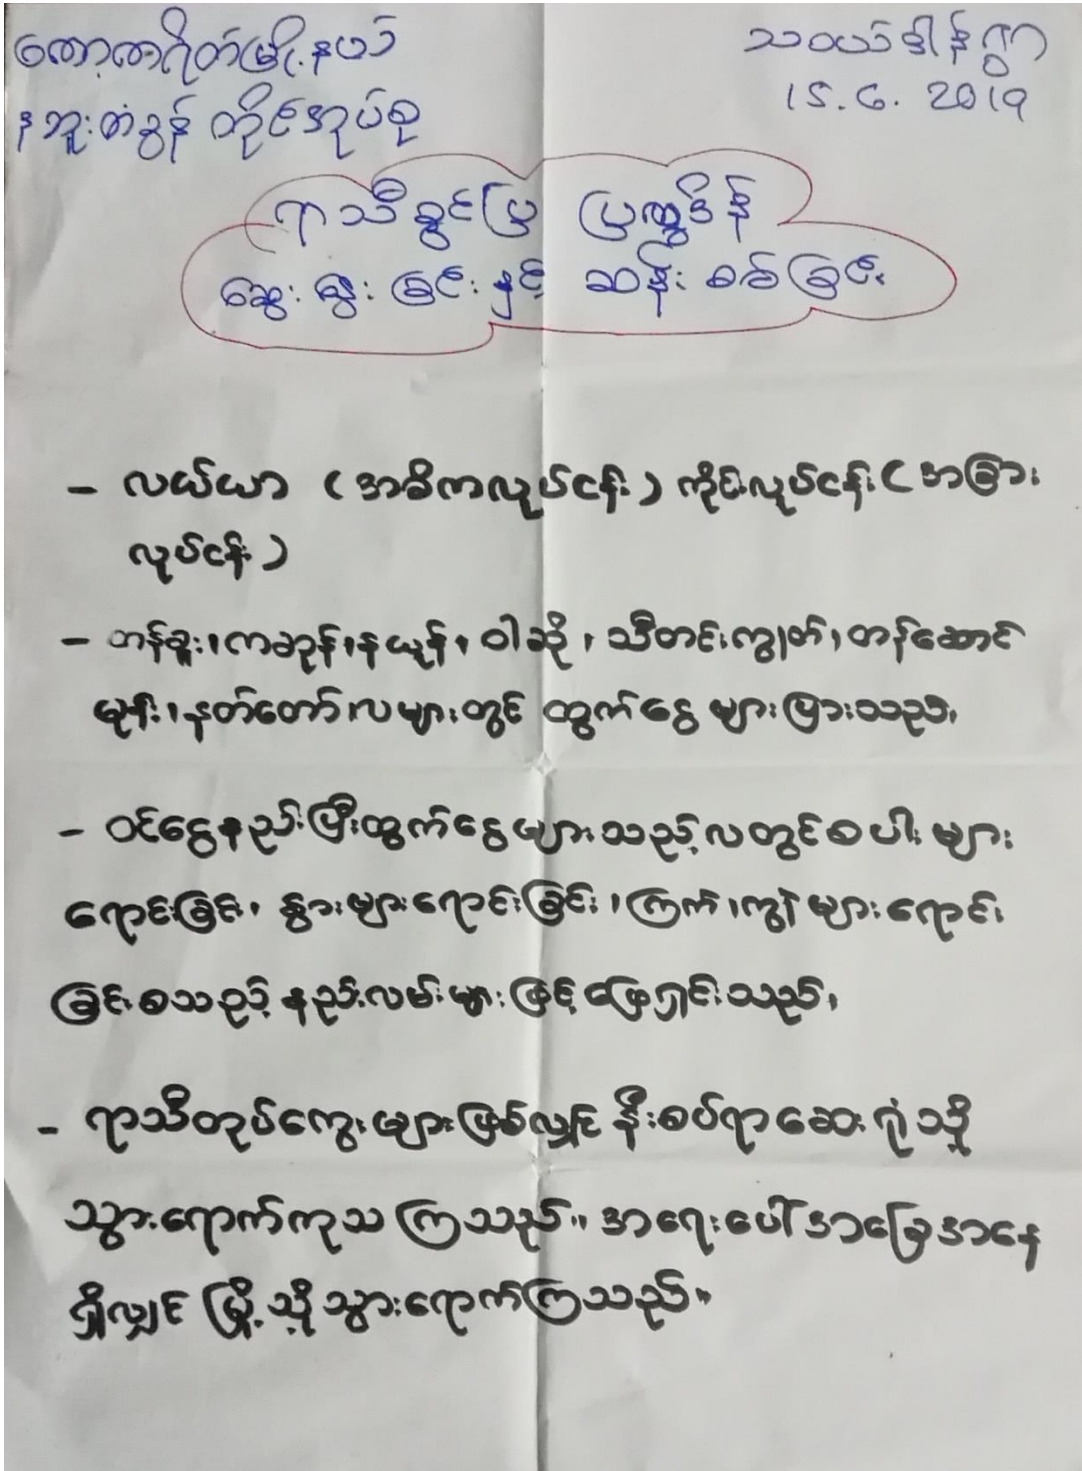 ကော့ကရိတ်မြို့နယ်
သဝယ်ဒါန်ရွာ
နဘူးတံခွန် တိုင်အုပ်စု
15.6.2019
ရာသီခွင်ပြ ပြက္ခဒိန်
ဆွေးနွေးခြင်းနှင့် ဆန်းစစ်ခြင်း
- လယ်ယာ (အဓိကလုပ်ငန်း) ကိုင်းလုပ်ငန်း (အခြား
လုပ်ငန်း)
- တန်ခူး၊ ကဆုန်၊ နယုန်၊ ဝါဆို၊ သီတင်းကျွတ်၊ တန်ဆောင်
မုန်း၊ နတ်တော်လများတွင် ထွက်ငွေများပြားသည်၊
- ဝင်ငွေနည်းပြီးထွက်ငွေများသည့်လတွင်စပါးများ
ရောင်းခြင်း၊ နွားများရောင်းခြင်း၊ ကြက်၊ ကျွဲများရောင်း
ခြင်းစသည့်နည်းလမ်းများဖြင့်ဖြေရှင်းသည်၊
- ရာသီတုပ်ကွေးများဖြစ်လျှင် နီးစပ်ရာဆေးရုံသို့
သွားရောက်ကုသကြသည်။ အရေးပေါ်အခြေအနေ
ရှိလျှင် မြို့သို့သွားရောက်ကြသည်။